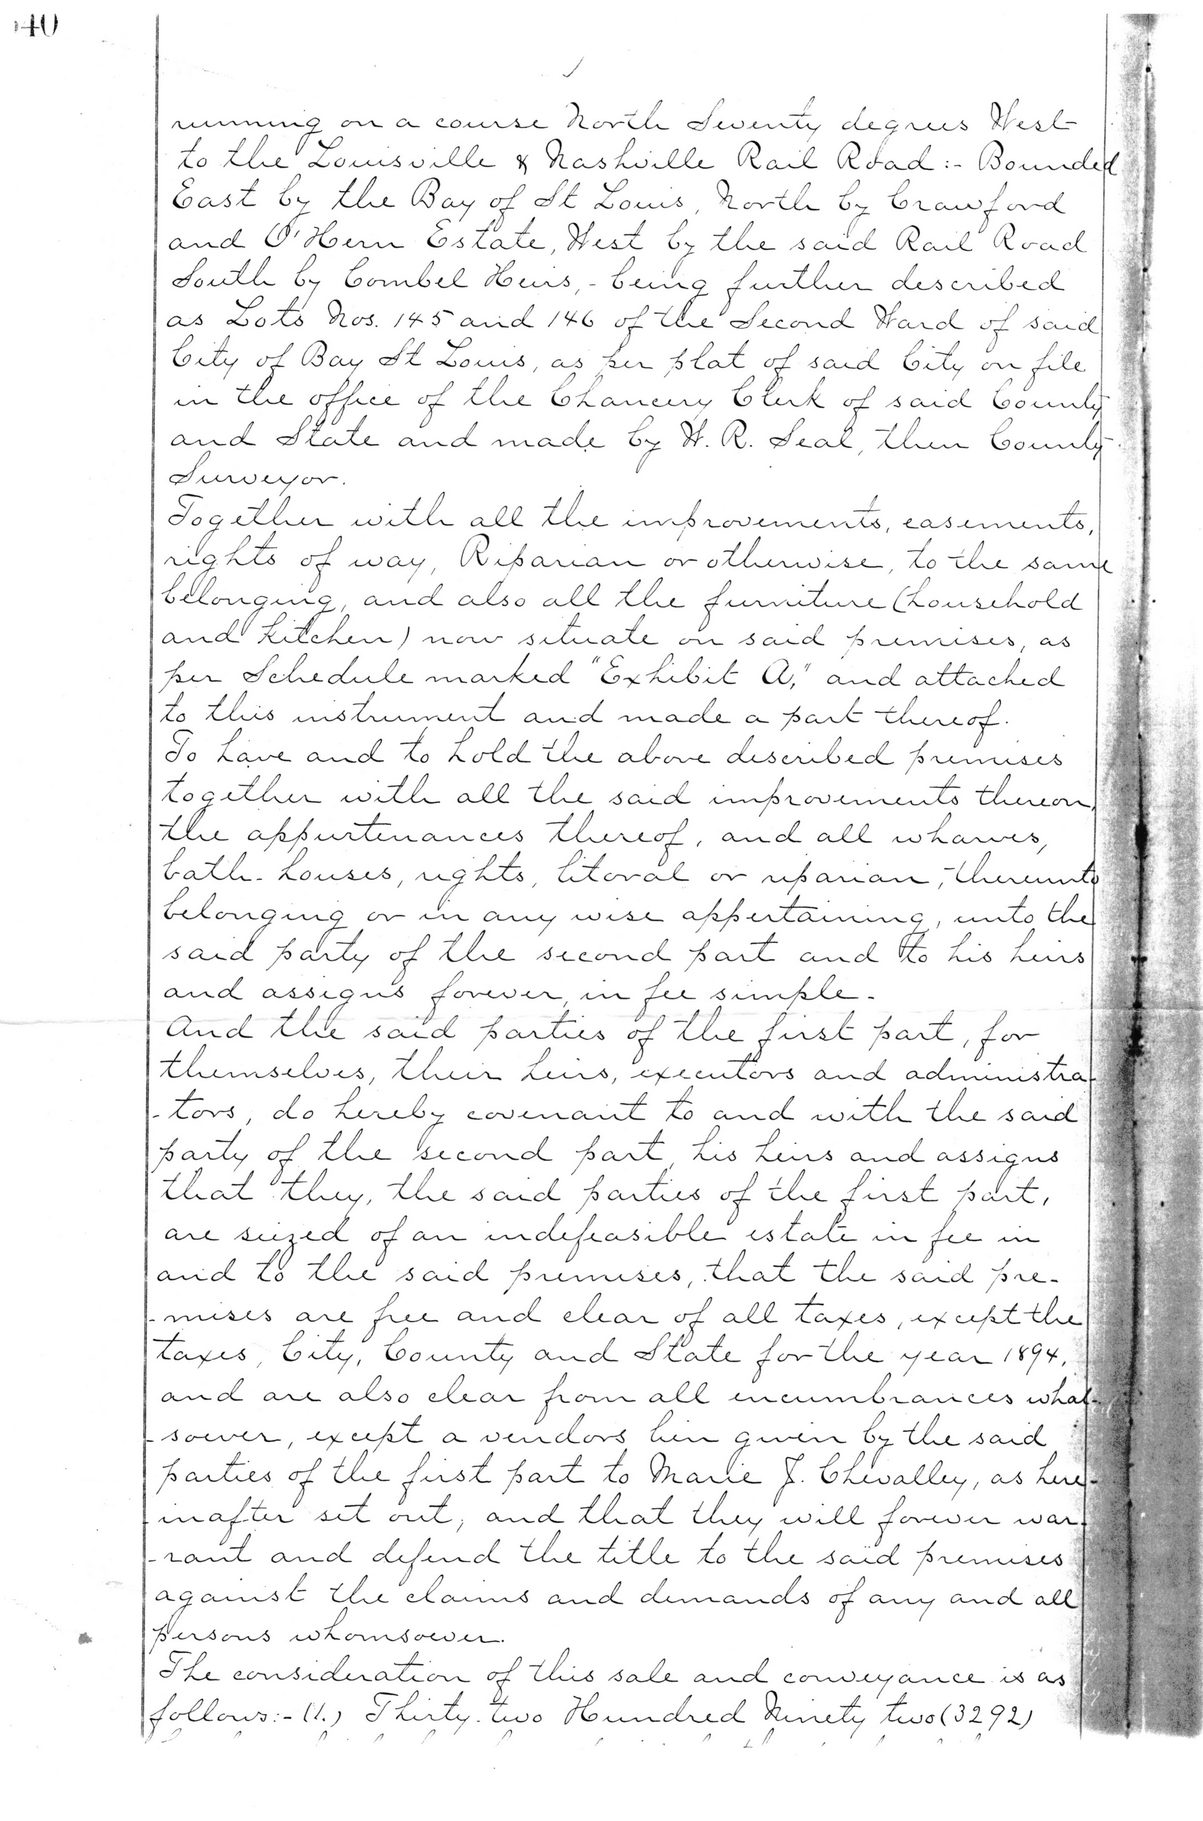 40
running on a course North Seventy degrees West
to the Louisville & Nashville Rail Road :- Bounded
East by the Bay of St Louis, North by Crawford
and O'Hern Estate, West by the said Rail Road
South by Combel Heirs, - being further described
as Lots Nos. 145 and 146 of the Second Ward of said
City of Bay St Louis, as per plat of said City on file
in the office of the Chancery Clerk of said County
and State and made by W. R. Seal, then County
Surveyor.
Together with all the improvements, easements,
rights of way, Riparian or otherwise, to the same
belonging, and also all the furniture (household
and kitchen) now situate on said premises, as
per Schedule marked "Exhibit A," and attached
to this instrument and made a part thereof.
To have and to hold the above described premises
together with all the said improvements thereon,
the appurtenances thereof, and all wharves,
bath-houses, rights, litoral or riparian, thereunto
belonging or in any wise appertaining, unto the
said party of the second part and to his heirs
and assigns forever, in fee simple.
And the said parties of the first part, for
themselves, their heirs, executors and administra-
-tors, do hereby covenant to and with the said
party of the second part, his heirs and assigns
that they, the said parties of the first part,
are seized of an indefeasible estate in fee in
and to the said premises, that the said pre-
-mises are free and clear of all taxes, except the
taxes, City, County and State for the year 1894,
and are also clear from all encumbrances what-
-soever, except a vendors lien given by the said
parties of the first part to Marie J. Chevalley, as here-
-inafter set out, and that they will forever war-
-rant and defend the title to the said premises
against the claims and demands of any and all
persons whomsoever.
The consideration of this sale and conveyance is as
follows:- (1.) Thirty-two Hundred Ninety two (3292)